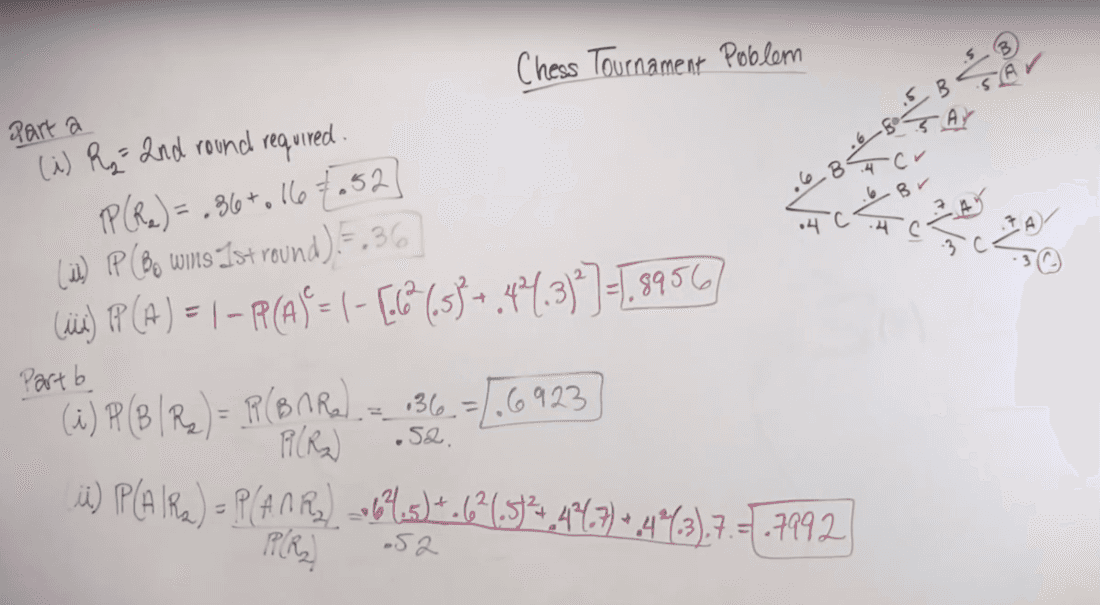 Chess Tournament Poblem
Part a
(i) R₂ = 2nd round required.
P(R₂) = .36 + .16 = .52
(ii) P(B₀ wins 1st round) = .36
(iii) P(A) = 1 - P(A)ᶜ = 1 - [.6²(.5)² + .4²(.3)²] = .8956
Part b
(i) P(B|R₂) = P(B∩R₂) / P(R₂) = .36 / .52. = .6923
ii) P(A|R₂) = P(A∩R₂) / P(R₂) = .6²(.5) + .6²(.5)² + .4²(.7) + .4²(.3).7. / .52 = .7992
.5 B
.5 B .5 A ✓
.6 B .5 A ✓
.6 B .4 C ✓
.6 B ✓ .7 A ✓ .7 A ✓
.4 C .4 C .3 C .3 C